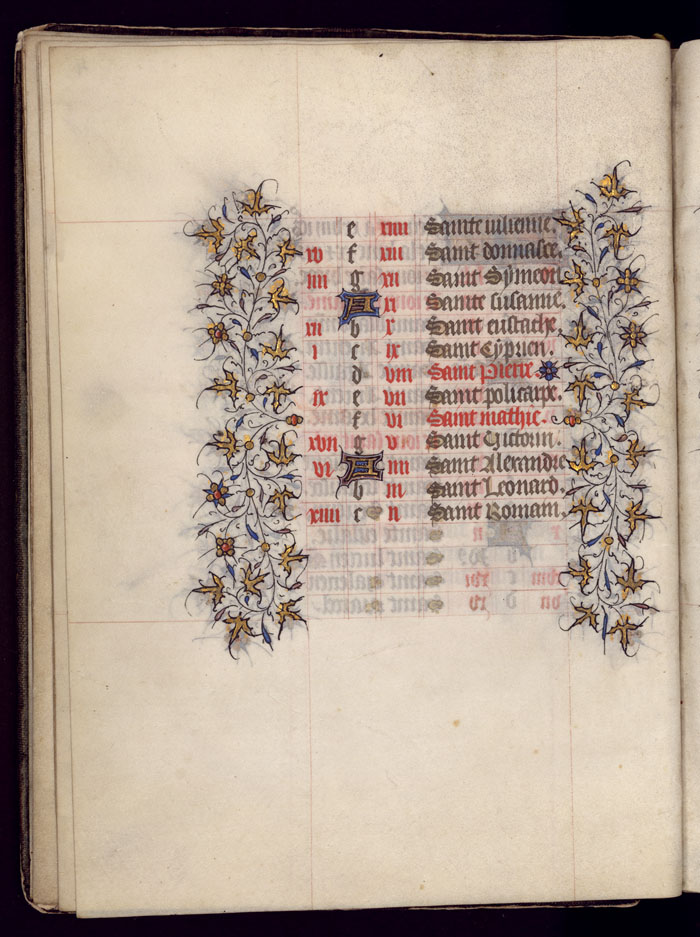 e xiiii Sainte iulienne.
xv f xiii Saint donnasce.
iiii g xii Saint Symeon
A xi Sainte susanne.
xii b x Saint eustache.
i c ix Saint Cyprien.
d viii Saint pierre
ix e vii Saint policarpe.
f vi Saint mathie.
xvii g v Saint Victorin.
vi A iiii Saint Alexandre
b iii Saint Leonard.
xiiii c ii Saint Romain.